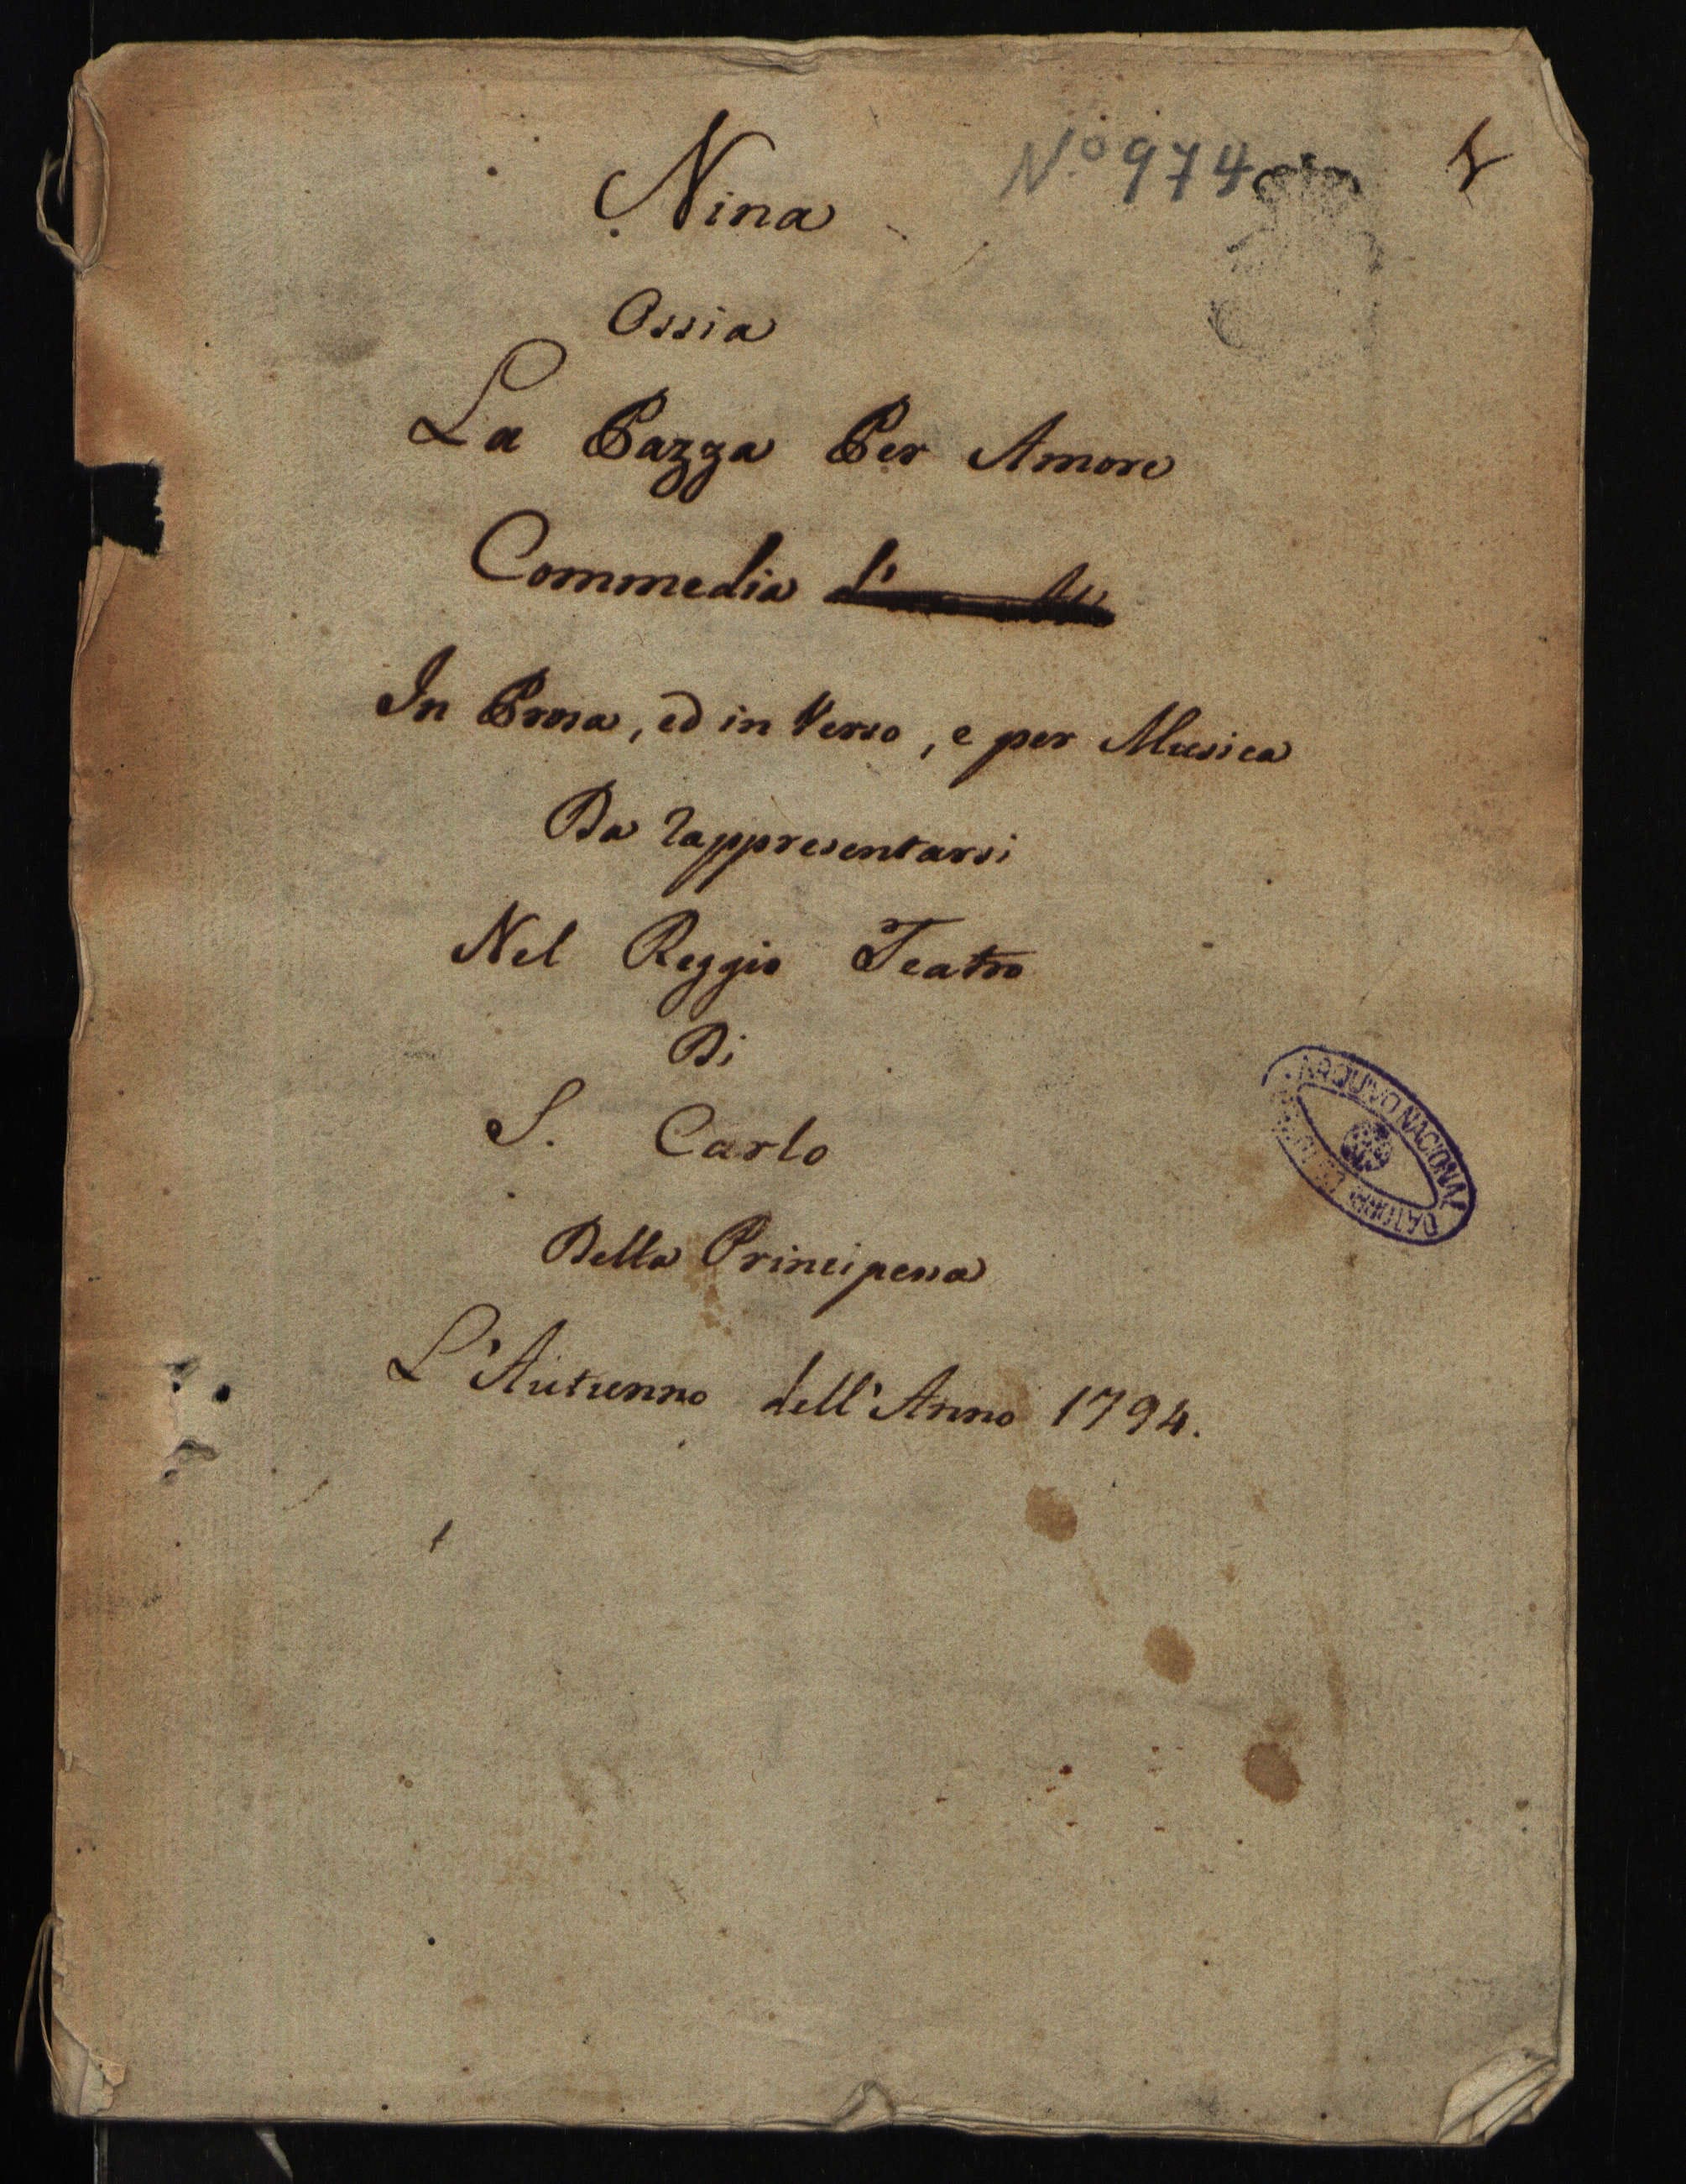 Nina
Nº 974
Ossia
La Pazza Per Amore
Commedia
In Prosa, ed in Verso, e per Musica
Da rappresentarsi
Nel Reggio Teatro
Di
S. Carlo
Della Principessa
L'Autunno dell'Anno 1794.
ARQUIVO NACIONAL
DA TORRE DO TOMBO